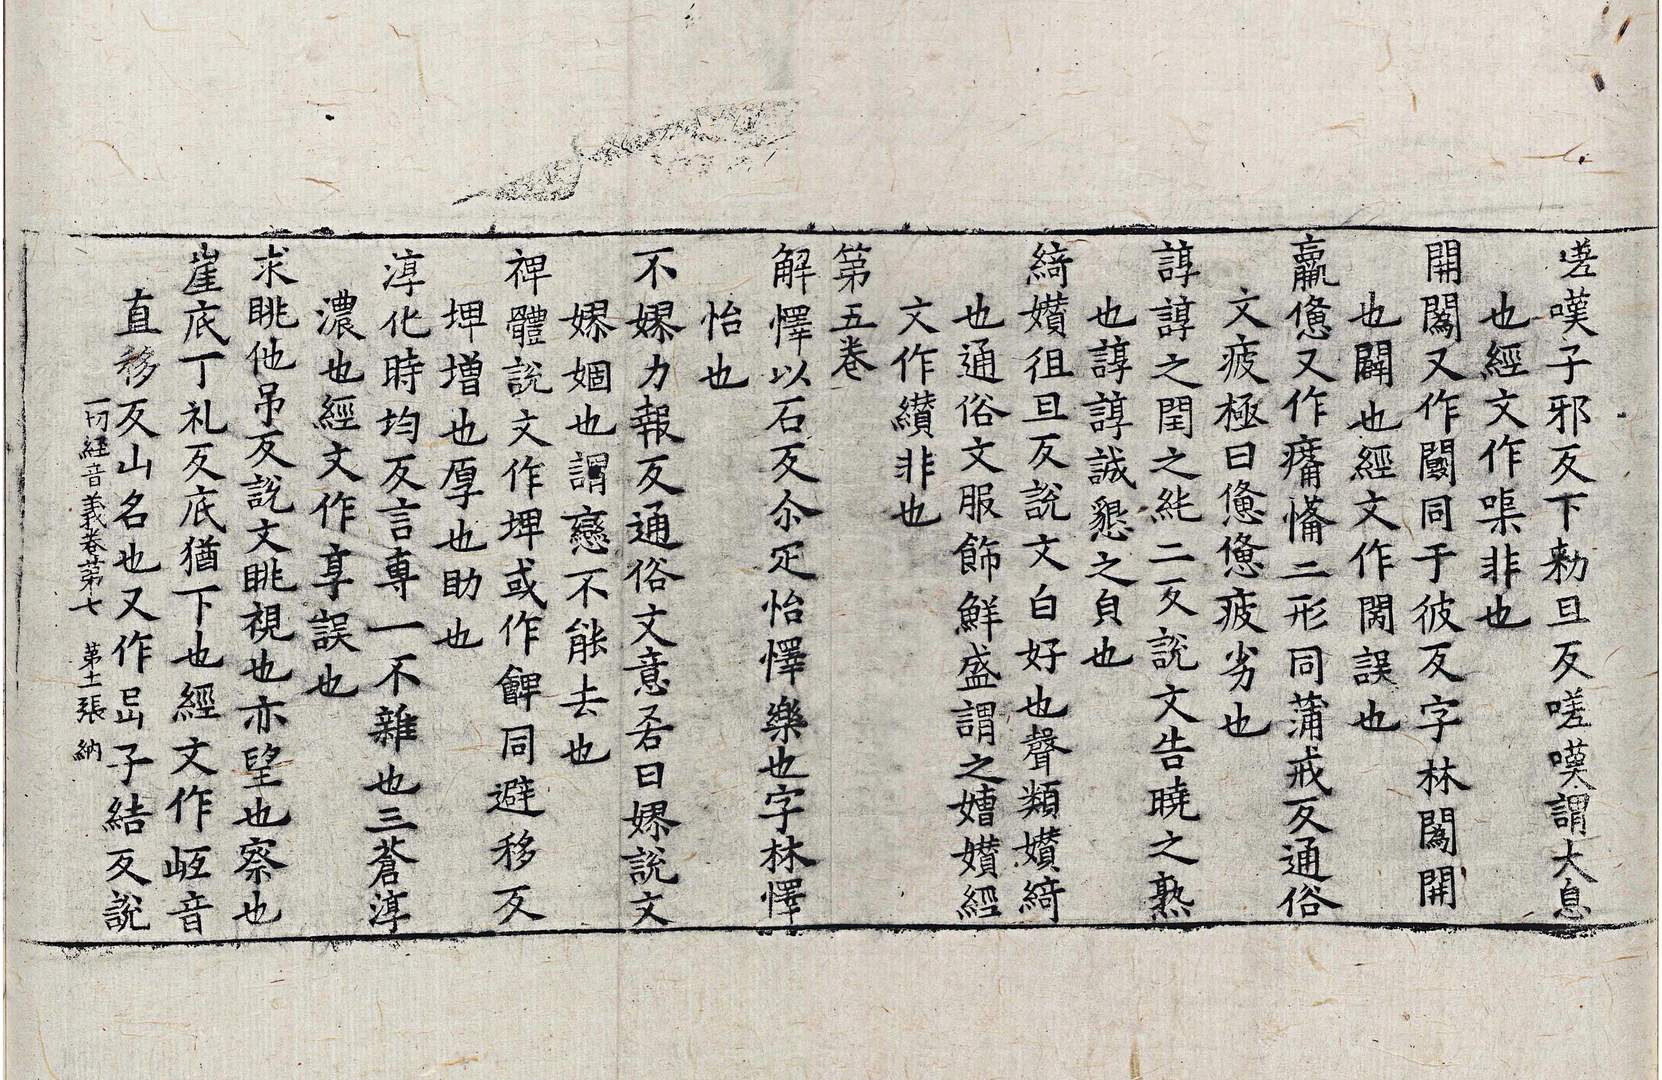 嗟嘆子邪反下勑旦反嗟嘆謂大息
也經文作㖡非也
開闔又作闦同于彼反字林闔開
也闢也經文作閡誤也
羸憊又作㾱㣁二形同蒲戒反通俗
文疲極曰憊憊疲劣也
諄諄之閏之純二反說文告曉之熟
也諄諄誠懇之皃也
綺㜺徂旦反說文白好也聲類㜺綺
也通俗文服飾鮮盛謂之㜺經
文作纘非也
第五卷
解懌以石反尒疋怡懌樂也字林懌
怡也
不嫪力報反通俗文意吝曰嫪說文
嫪婟也謂戀不能去也
裨體說文作埤或作㽡同避移反
埤增也厚也助也
淳化時均反言專一不雜也三蒼淳
濃也經文作享誤也
求眺他吊反說文眺視也亦望也察也
崖底丁礼反底猶下也經文作㟁音
直移反山名也又作㞯子結反說
一切經音義卷第七 第十一張 納